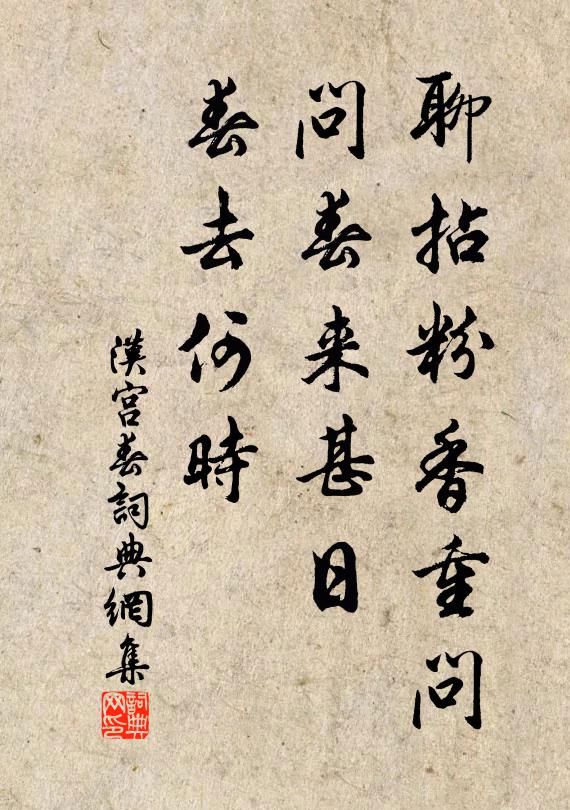 聊拈粉香重問
問春來甚日
春去何時
漢宮春詞典網集
詞典
网印